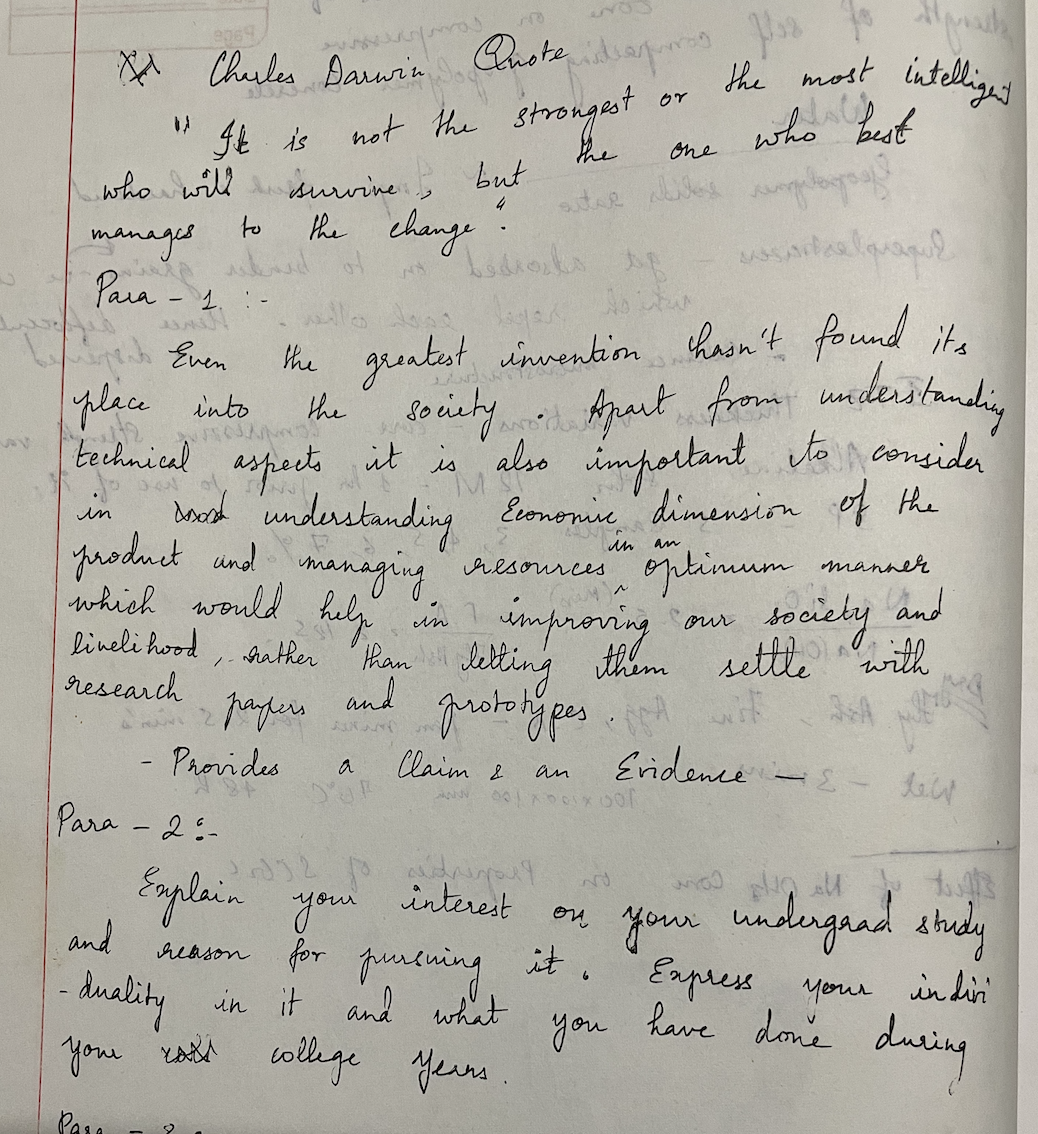 Charles Darwin Quote
" It is not the strongest or the most intelligent
who will survive, but the one who best
manages to the change ".
Para - 1 :-
Even the greatest invention hasn't found its
place into the society. Apart from understanding
technical aspects it is also important to consider
in understanding Economic dimension of the
product and managing resources in an optimum manner
which would help in improving our society and
livelihood, rather than letting them settle with
research papers and prototypes.
- Provides a Claim & an Evidence —
Para - 2 :-
Explain your interest on your undergrad study
and reason for pursuing it. Express your indivi
- duality in it and what you have done during
your college years.
Para -